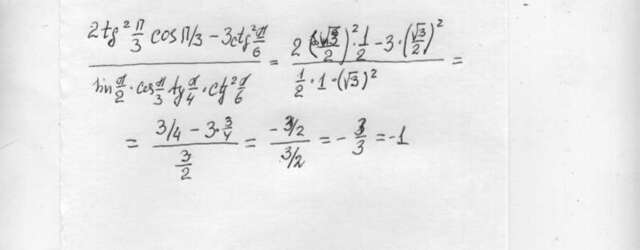 (2tg² π/3 cos π/3 - 3ctg² π/6) / (sin π/2 · cos π/3 tg π/4 · ctg² π/6) = (2(√3/2)² · 1/2 - 3 · (√3/2)²) / (1/2 · 1 · (√3)²) =
= (3/4 - 3 · 3/4) / (3/2) = (-3/2) / (3/2) = - 3/3 = -1